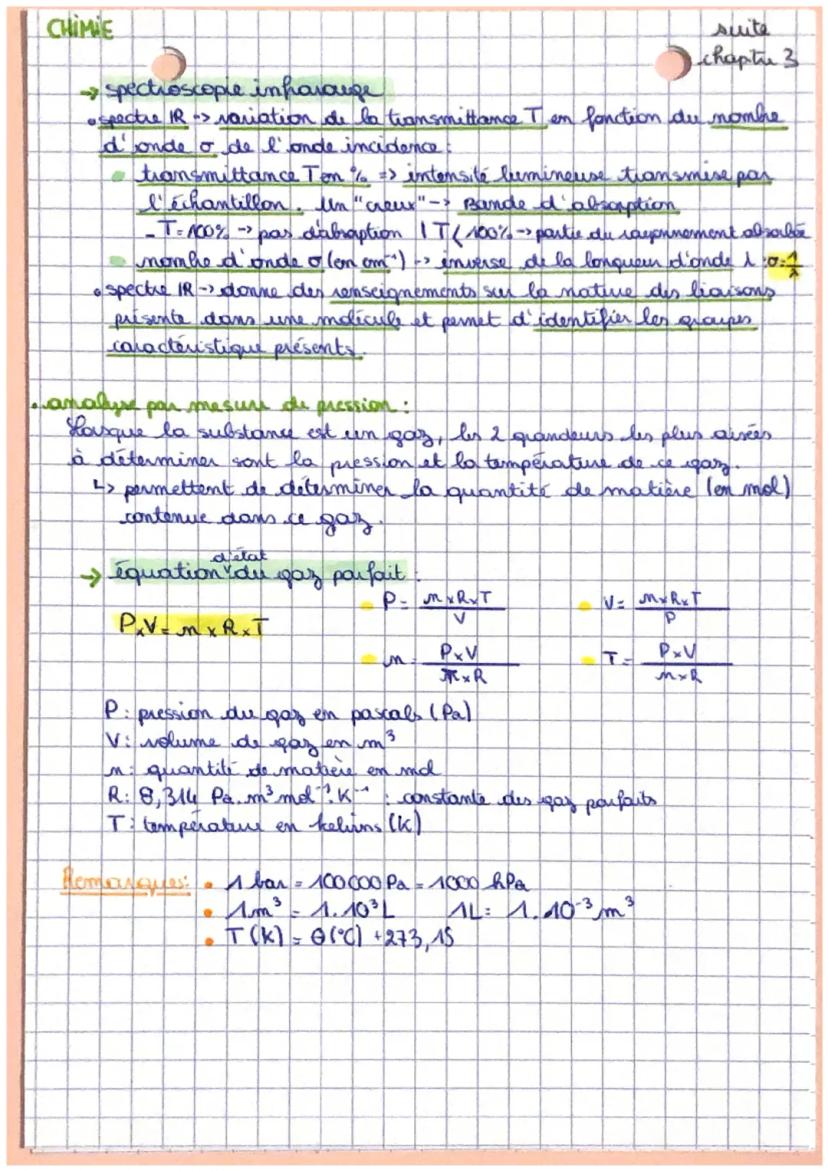 CHiMiE
suite
chapitre 3
→ spectroscopie infrarouge
• spectre IR -> variation de la transmittance T en fonction du nombre
d'onde σ de l'onde incidence :
• transmittance T en % => intensité lumineuse transmise par
l'échantillon. Un "creux" -> Bande d'absorption
- T = 100% -> pas d'absorption | T < 100% -> partie du rayonnement absorbée
• nombre d'onde σ (en cm⁻¹) -> inverse de la longueur d'onde λ : σ = 1/λ
• spectre IR -> donne des renseignements sur la nature des liaisons
présente dans une molécule et permet d'identifier les groupes
caractéristique présents.
• analyse par mesure de pression :
Lorsque la substance est un gaz, les 2 grandeurs les plus aisées
à déterminer sont la pression et la température de ce gaz.
↳ permettent de déterminer la quantité de matière (en mol)
contenue dans ce gaz.
→ équation d'état du gaz parfait :
P × V = n × R × T
• P = n × R × T / V
• V = n × R × T / P
• n = P × V / × R
• T = P × V / n × R
P : pression du gaz en pascals (Pa)
V : volume de gaz en m³
n : quantité de matière en mol
R : 8,314 Pa. m³ mol⁻¹. K⁻¹ : constante des gaz parfaits
T : température en kelvins (K)
Remarques : • 1 bar = 100 000 Pa = 1000 hPa
• 1 m³ = 1. 10³ L 1L = 1. 10⁻³ m³
• T (K) = θ (°C) + 273,15